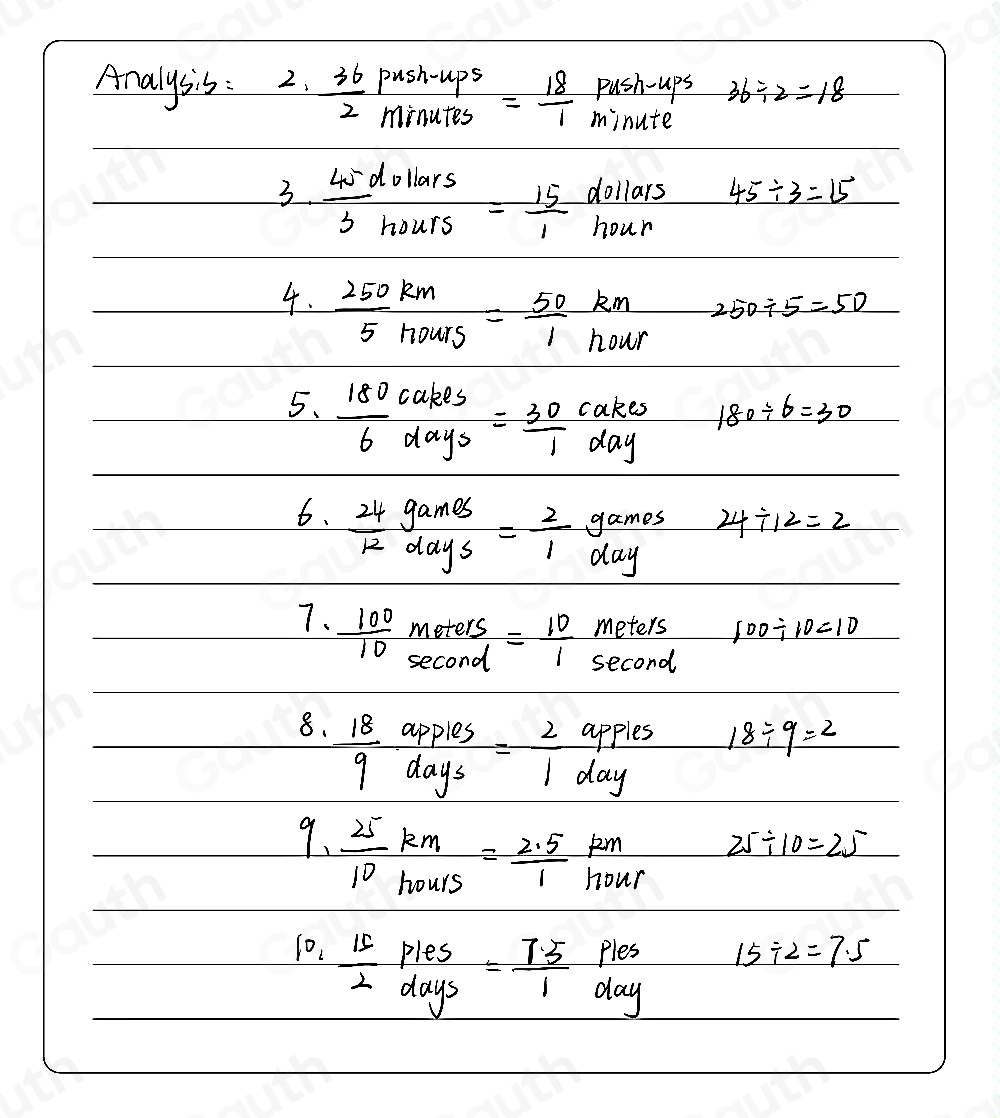 Analysis: 2. 36 push-ups / 2 minutes = 18 push-ups / 1 minute 36÷2=18
3. 45 dollars / 3 hours = 15 dollars / 1 hour 45÷3=15
4. 250 km / 5 hours = 50 km / 1 hour 250÷5=50
5. 180 cakes / 6 days = 30 cakes / 1 day 180÷6=30
6. 24 games / 12 days = 2 games / 1 day 24÷12=2
7. 100 meters / 10 second = 10 meters / 1 second 100÷10=10
8. 18 apples / 9 days = 2 apples / 1 day 18÷9=2
9. 25 km / 10 hours = 2.5 km / 1 hour 25÷10=2.5
10. 15 ples / 2 days = 7.5 ples / 1 day 15÷2=7.5